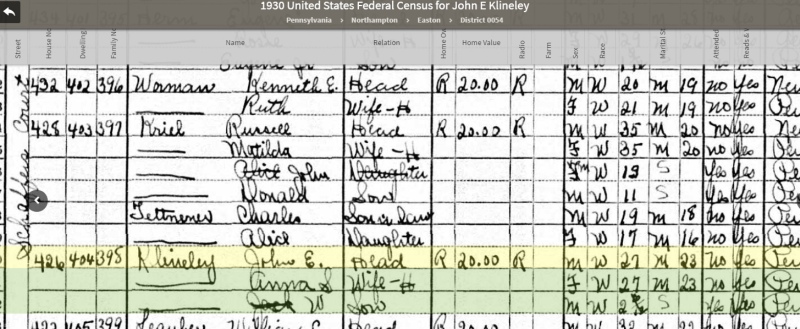 1930 United States Federal Census for John E Klineley
Pennsylvania > Northampton > Easton > District 0054
Street House No Dwelling Family No Name Relation Home Ow Home Value Radio Farm Sex Race Marital S Attended Reads & W
432 402 396 Worman Kenneth E. Head R 20.00 R M W 20 M 19 no yes
Ruth Wife-H F W 21 M 19 no yes
428 403 397 Kriel Russell Head R 20.00 R M W 35 M 20 no yes
Matilda Wife-H F W 35 M 20 no yes
Alice John Daughter W 13 S yes yes
Donald Son M W 11 S yes yes
Tettnener Charles Son in law M W 19 M 18 no yes
Alice Daughter F W 17 M 16 no yes
426 404 398 Klineley John E. Head R 20.00 R M W 27 M 23 no yes
Anna S Wife-H F W 27 M 23 no yes
W Son M W S
405 399 William
Schaffers Court